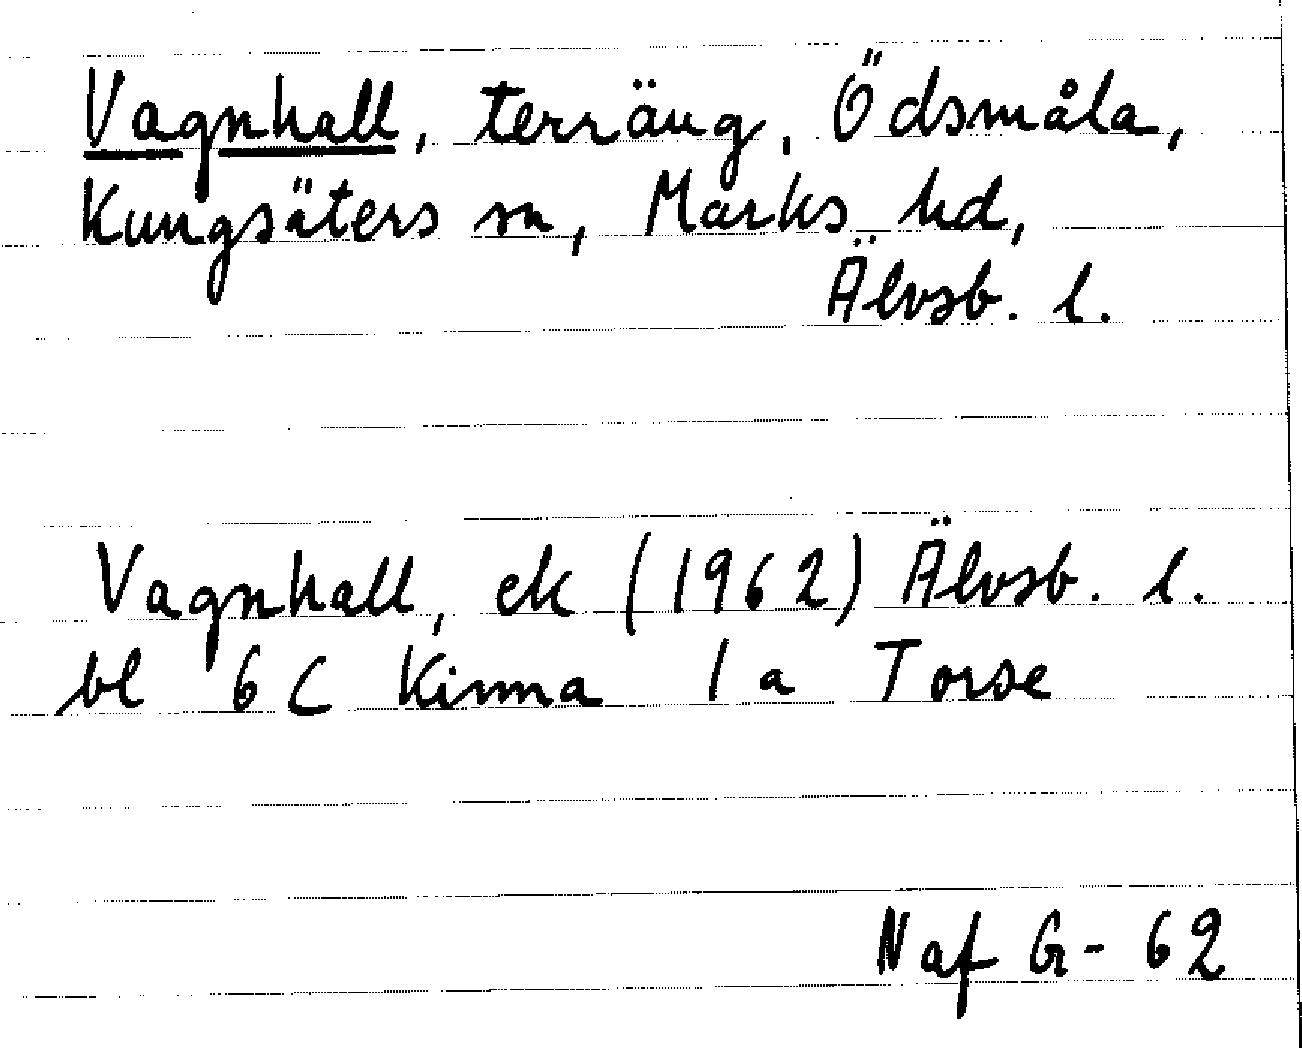 Vagnhall, terräng, Ödsmåla,
Kungsäters sn, Marks hd,
Älvsb. l.
Vagnhall, ek (1962) Älvsb. l.
bl 6 C Kinna 1 a Torse
Naf G - 62